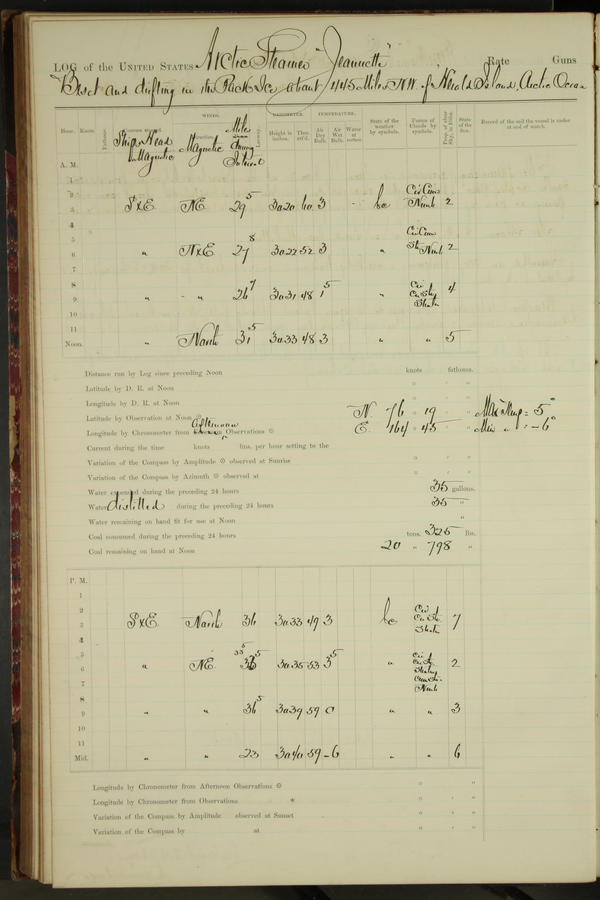 LOG of the UNITED STATES Arctic Steamer "Jeannette" Rate Guns
Beset and drifting in the Pack Ice about 445 Miles N.W. of Herald Island, Arctic Ocean
WINDS. BAROMETER. TEMPERATURE.
Hour. Knots. Fathoms. Courses steered. Ship's Head Magnetic Direction. Magnetic Miles during Interval Leeway. Height in inches. Ther. att'd. Air Dry Bulb. Air Wet Bulb. Water at surface. State of the weather by symbols. Forms of Clouds by symbols. State of the Sea. Record of the sail the vessel is under at end of watch.
A. M.
1
2
3 SxE NE 29 5 30 20 60 3 bc Cir Cum Nimb 2
4
5
6 " NxE 27 8 30 22 52 3 " Cir Cum Str Nimb 2
7
8
9 " " 26 7 30 31 48 1 5 " Cir Cir Str Strata 4
10
11
Noon. " North 31 5 30 33 48 3 " " 5
Distance run by Log since preceding Noon knots fathoms.
Latitude by D. R. at Noon
Longitude by D. R. at Noon
Latitude by Observation at Noon N. 76 19 Max Temp = 5°
Longitude by Chronometer from afternoon Observations E. 164 45 Min " = -6°
Current during the time knots fms. per hour setting to the
Variation of the Compass by Amplitude observed at Sunrise
Variation of the Compass by Azimuth observed at
Water expended during the preceding 24 hours 35 gallons.
Water distilled during the preceding 24 hours 35 "
Water remaining on hand fit for use at Noon "
Coal consumed during the preceding 24 hours tons. 325 lbs.
Coal remaining on hand at Noon 20 " 798 "
P. M.
1
2
3 SxE North 36 30 33 49 3 bc Cir Cir Str Strata 7
4
5
6 " NE 30 35 53 3 5 " 2
7
8
9 " " 36 5 30 39 59 0 " " 3
10
11
Mid. " " 23 30 40 59 -6 " " 6
Longitude by Chronometer from Afternoon Observations
Longitude by Chronometer from Observations *
Variation of the Compass by Amplitude observed at Sunset
Variation of the Compass by at